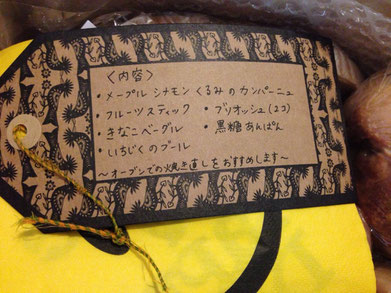 〈内容〉
・メープル シナモン くるみ の カンパーニュ
・フルーツスティック ・ブリオッシュ(2コ)
・きなこベーグル ・黒糖あんぱん
・いちじくのブール
〜オーブンでの焼き直しをおすすめします〜